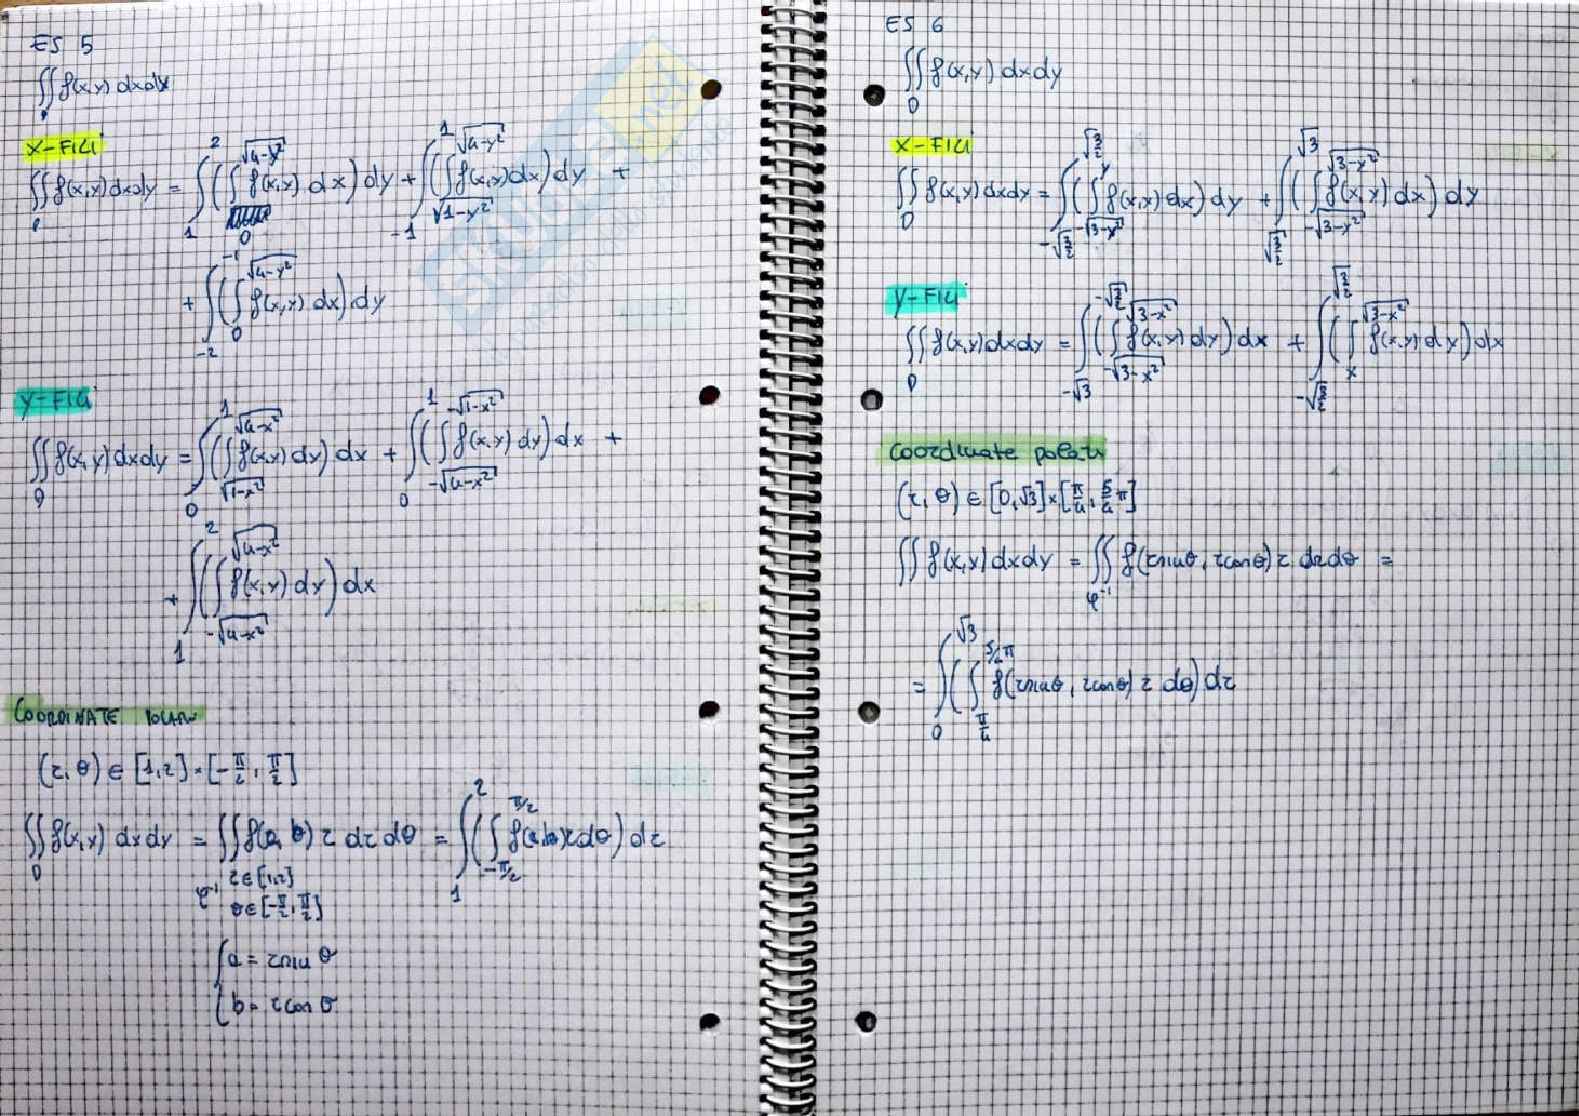 ES 5
∬_D f(x,y) dxdy
X-FILI
∬_D f(x,y) dxdy = ∫_1^2 (∫_0^{√(4-y²)} f(x,y) dx) dy + ∫_{-1}^1 (∫_{√(1-y²)}^{√(4-y²)} f(x,y) dx) dy +
+ ∫_{-2}^{-1} (∫_0^{√(4-y²)} f(x,y) dx) dy
Y-FILI
∬_D f(x,y) dxdy = ∫_0^1 (∫_{√(1-x²)}^{√(4-x²)} f(x,y) dy) dx + ∫_0^1 (∫_{-√(4-x²)}^{-√(1-x²)} f(x,y) dy) dx +
+ ∫_1^2 (∫_{-√(4-x²)}^{√(4-x²)} f(x,y) dy) dx
COORDINATE POLARI
(r, θ) ∈ [1,2] × [-π/2, π/2]
∬_D f(x,y) dxdy = ∬_{φ⁻¹} f(a, b) r dr dθ = ∫_1^2 (∫_{-π/2}^{π/2} f(a,b) r dθ) dr
r ∈ [1,2]
θ ∈ [-π/2, π/2]
{ a = r sin θ
{ b = r cos θ
ES 6
∬_D f(x,y) dxdy
X-FILI
∬_D f(x,y) dxdy = ∫_{-√(3/2)}^{√(3/2)} (∫_{-√(3-y²)}^y f(x,y) dx) dy + ∫_{√(3/2)}^{√3} (∫_{-√(3-y²)}^{√(3-y²)} f(x,y) dx) dy
Y-FILI
∬_D f(x,y) dxdy = ∫_{-√3}^{-√(3/2)} (∫_{-√(3-x²)}^{√(3-x²)} f(x,y) dy) dx + ∫_{-√(3/2)}^{√(3/2)} (∫_x^{√(3-x²)} f(x,y) dy) dx
Coordinate polari
(r, θ) ∈ [0,√3] × [π/4, 5/4 π]
∬ f(x,y) dxdy = ∬_{φ⁻¹} f(r sin θ, r cos θ) r dr dθ =
= ∫_0^{√3} (∫_{π/4}^{5/2 π} f(r sin θ, r cos θ) r dθ) dr
SKUOLA.net